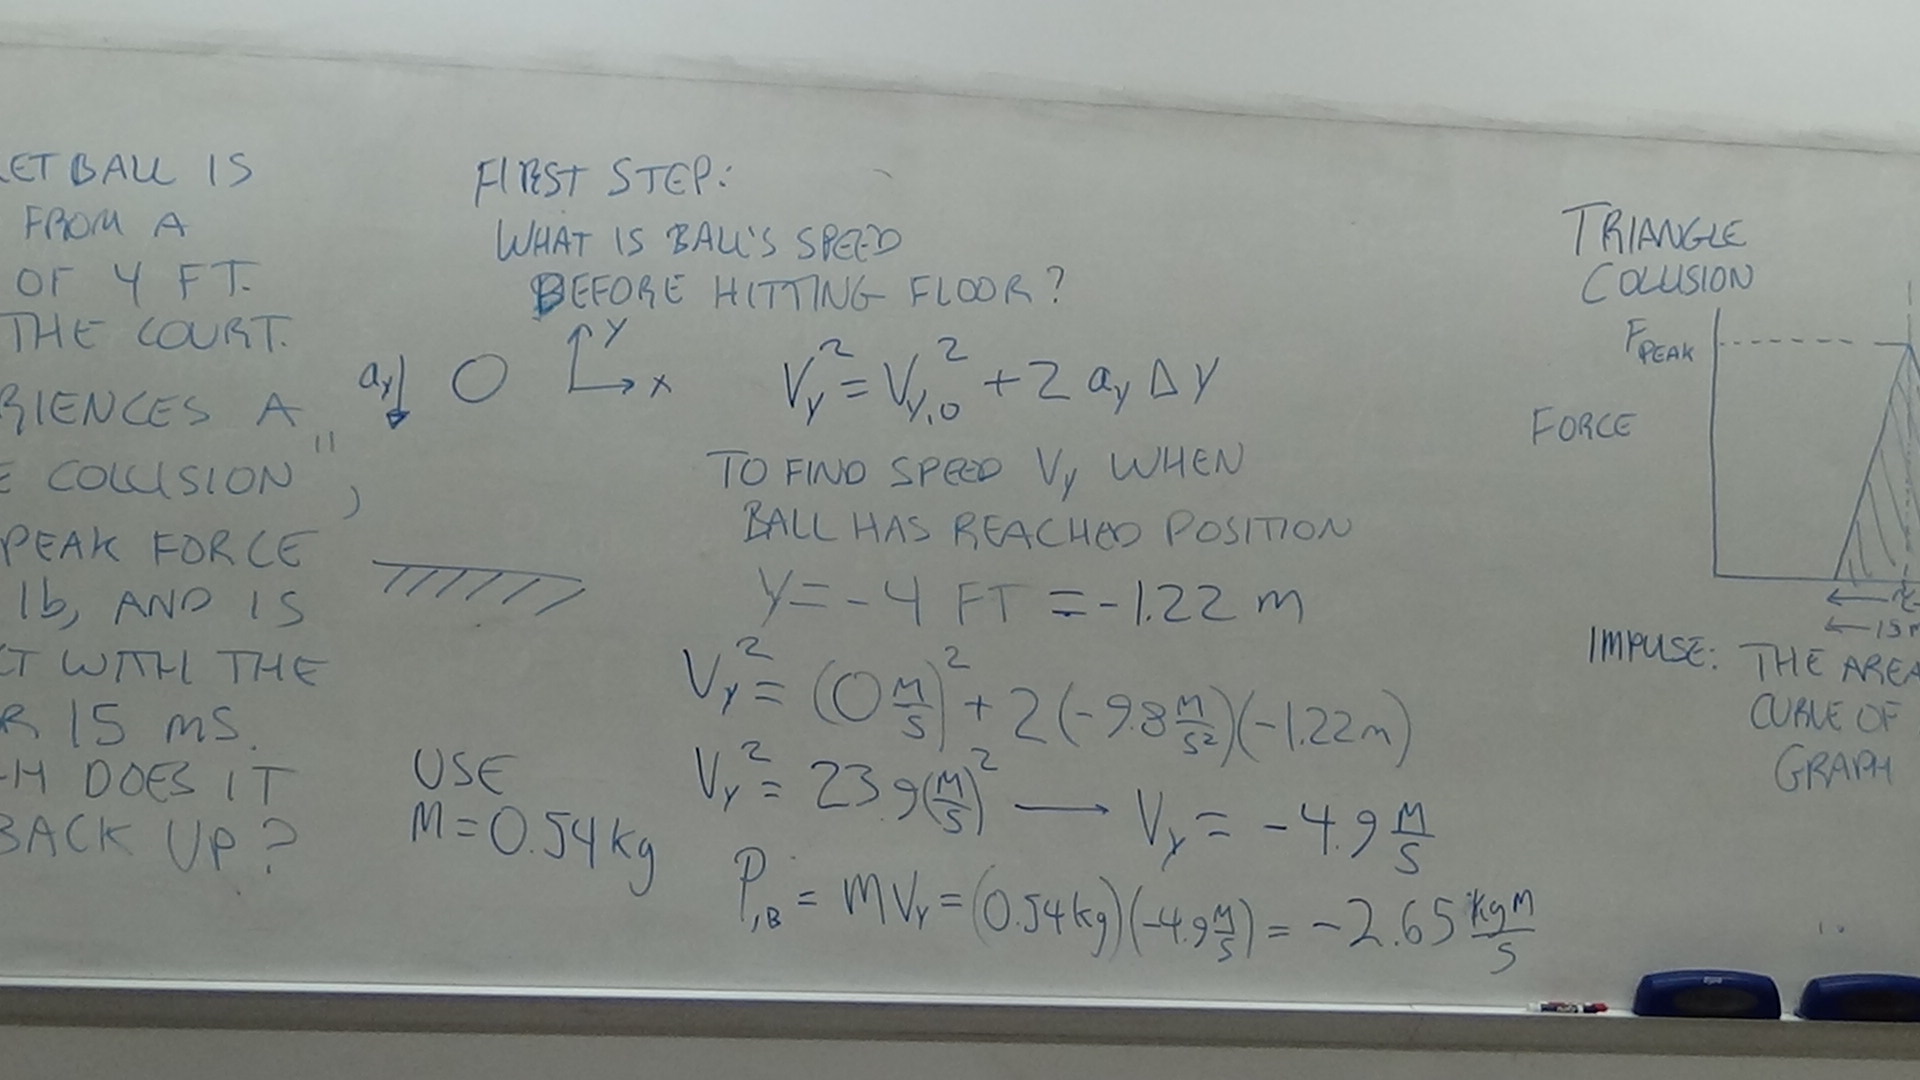 ETBALL IS
FROM A
OF 4 FT.
THE COURT.
RIENCES A
E COLLISION",
PEAK FORCE
lb, AND IS
CT WITH THE
R 15 ms.
H DOES IT
BACK UP?
ay
Y
X
USE
M=0.54kg
FIRST STEP:
WHAT IS BALL'S SPEED
BEFORE HITTING FLOOR?
Vy² = Vy,0² + 2 ay ΔY
TO FIND SPEED Vy WHEN
BALL HAS REACHED POSITION
Y = -4 FT = -1.22 m
Vy² = (0 M/S)² + 2(-9.8 M/S²)(-1.22m)
Vy² = 23.9(M/S)² → Vy = -4.9 M/S
P,B = MVy = (0.54kg)(-4.9 M/S) = -2.65 kgM/S
TRIANGLE
COLLISION
FPEAK
FORCE
15 m
IMPULSE: THE AREA
CURVE OF
GRAPH